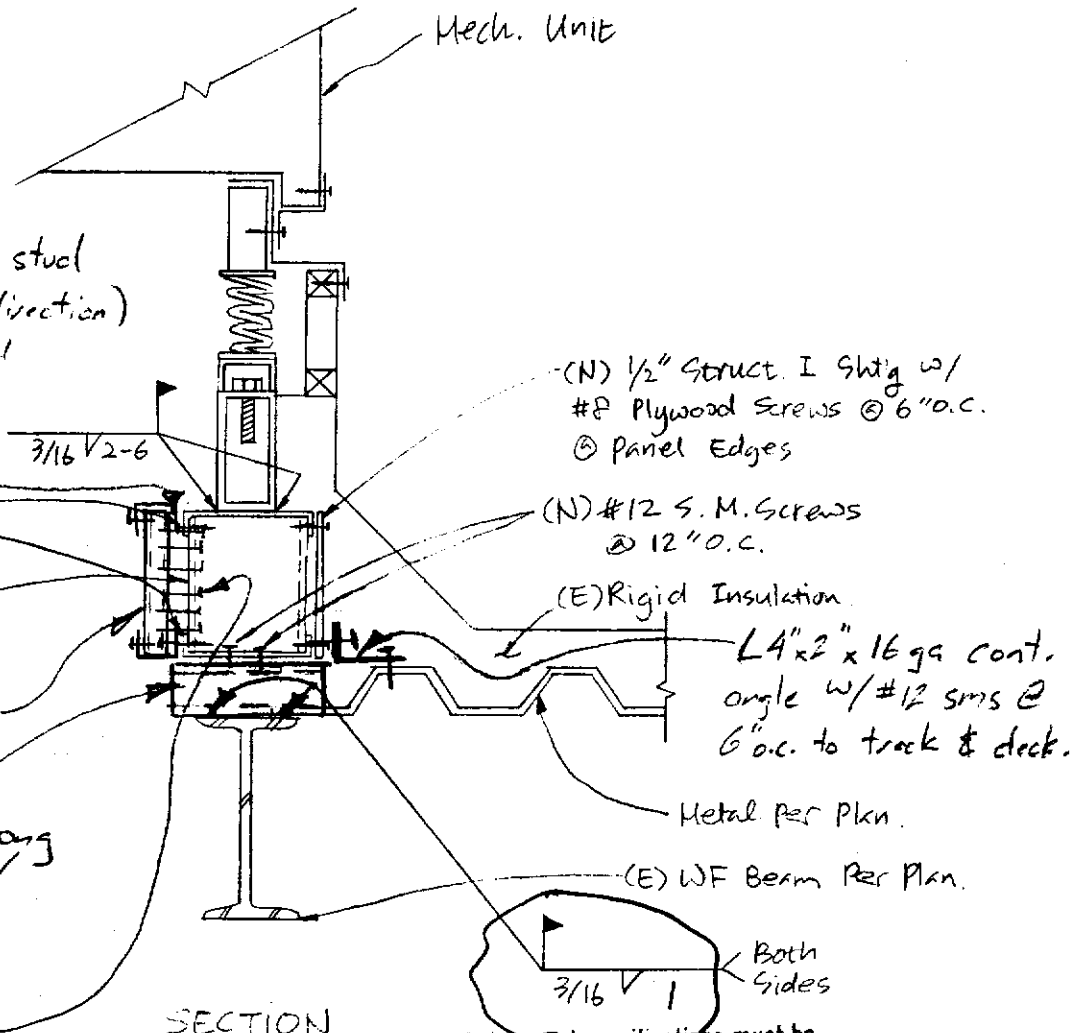 Mech. Unit
stud
direction)
3/16 2-6
(N) 1/2" Struct. I Sht'g w/
#8 Plywood Screws @ 6" O.C.
@ Panel Edges
(N) #12 S.M. Screws
@ 12" O.C.
(E) Rigid Insulation
L4"x2"x16 ga cont.
angle w/ #12 sms @
6" o.c. to track & deck.
Metal Per Plan.
(E) WF Beam Per Plan.
3/16 1
Both
Sides
SECTION
must be